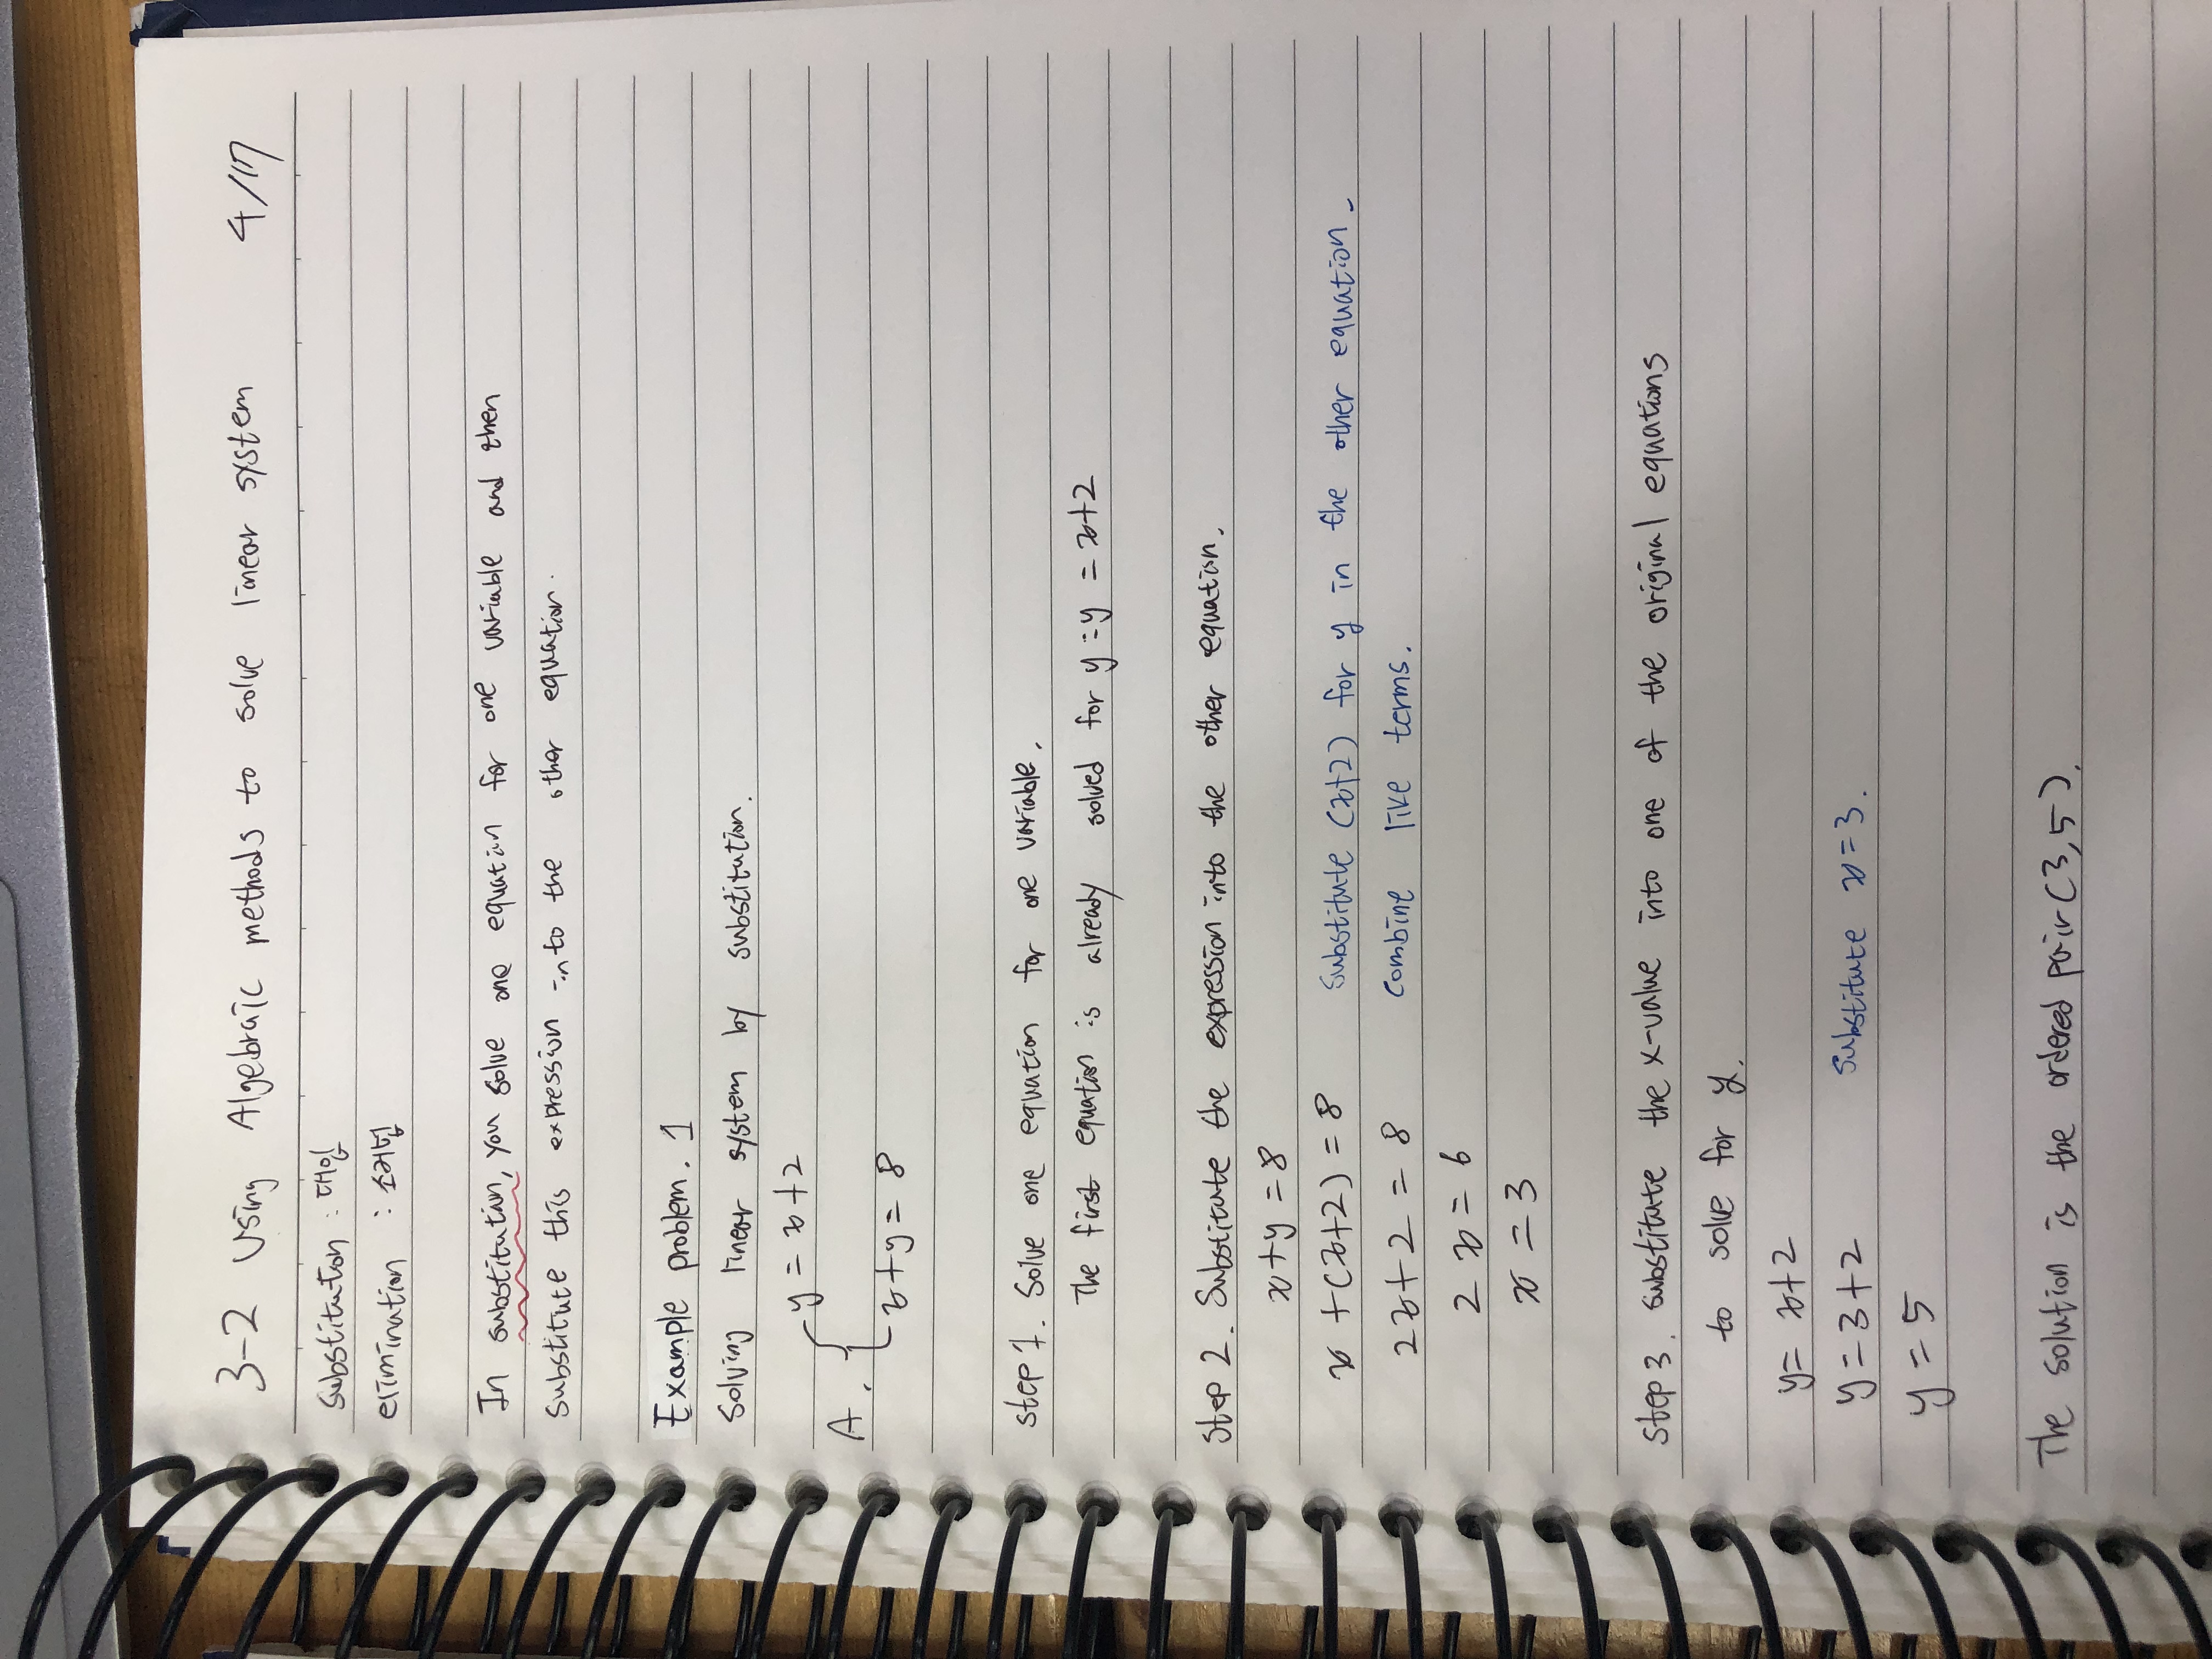 3-2 Using Algebraic methods to solve linear system 4/17
substitution : 대입
elimination : 소거법
In substitution, you solve one equation for one variable and then
substitute this expression into the other equation.
Example problem. 1
Solving linear system by substitution.
A. y = x+2
x+y = 8
step 1. Solve one equation for one variable.
The first equation is already solved for y : y = x+2
Step 2. Substitute the expression into the other equation.
x+y = 8
x +(x+2) = 8 Substitute (x+2) for y in the other equation.
2x+2 = 8 Combine like terms.
2x = 6
x = 3
Step 3. substitute the x-value into one of the original equations
to solve for y.
y = x+2
y = 3+2 Substitute x=3.
y = 5
The solution is the ordered pair (3,5).